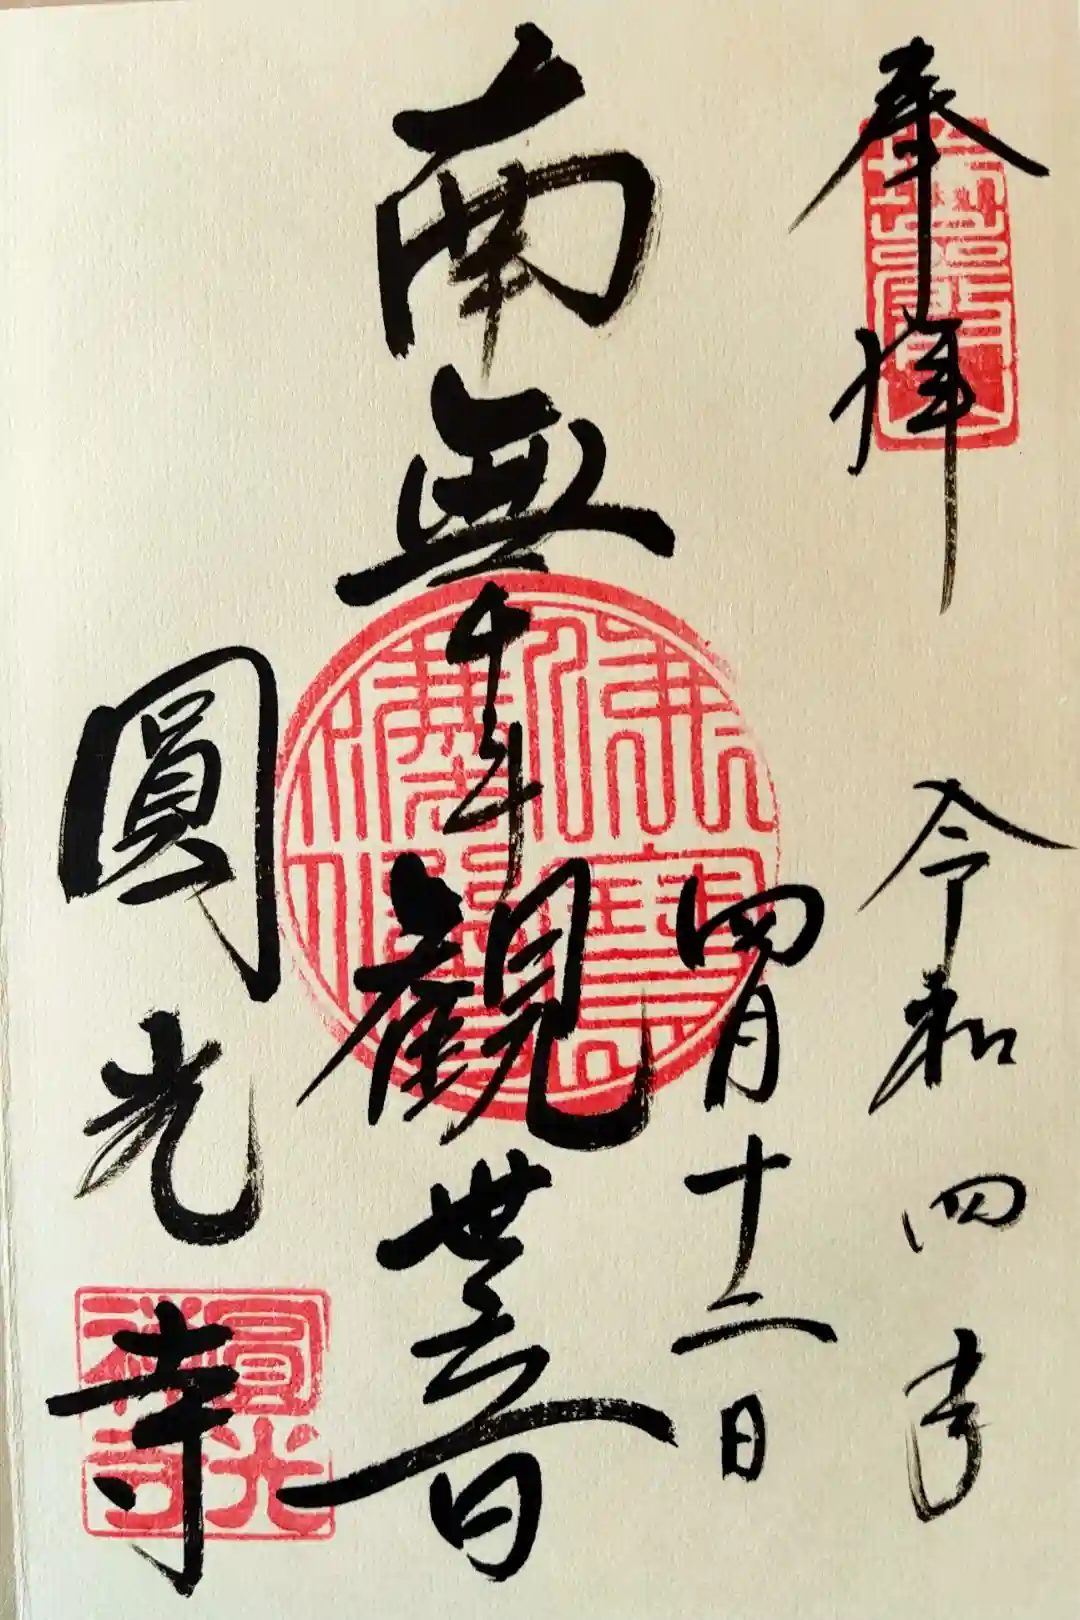 奉拝
令和四年
四月十二日
南無千手観世音
圓光寺
瑞巖山
圓光禅寺